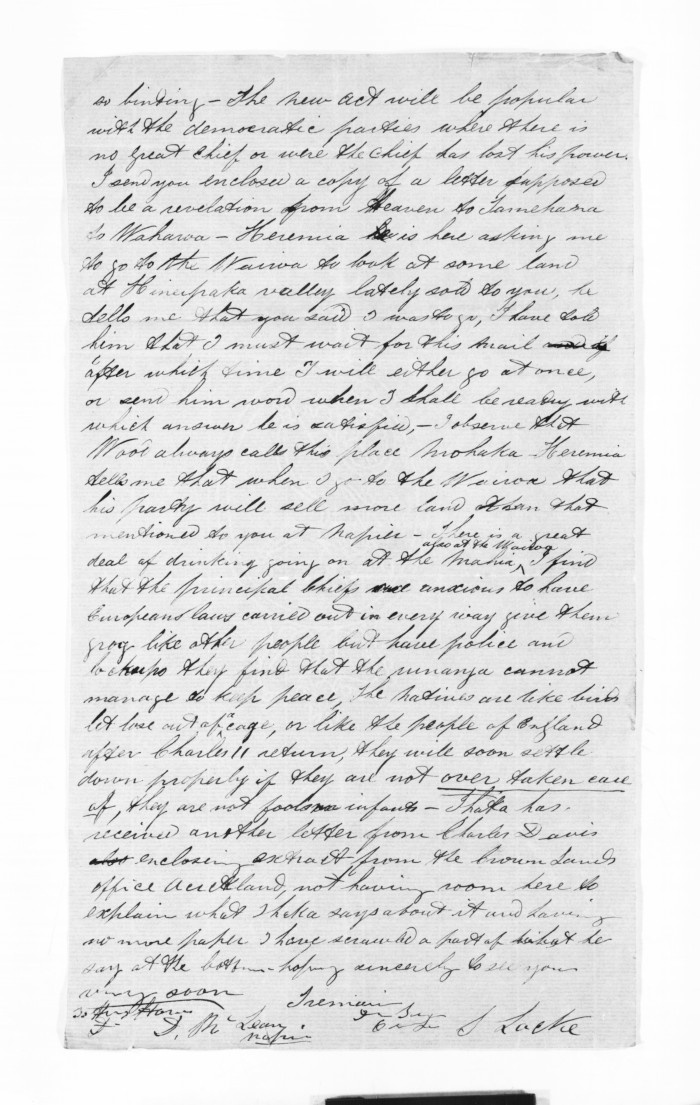 so binding - The new act will be popular
with the democratic parties where there is
no great chief or were the chief has lost his power.
I send you enclosed a copy of a letter supposed
to be a revelation from Heaven to Tamehana
to Waharoa - Heremia is here asking me
to go to the Wairoa to look at some land
at Hineipaka valley lately sold to you, he
tells me that you said I was to go, I have told
him that I must wait for this mail
after which time I will either go at once,
or send him word when I shall be ready with
which answer he is satisfied, - I observe that
Wool always calls this place Mohaka - Heremia
tells me that when I go to the Wairoa that
his party will sell more land than that
mentioned to you at Napier - There is a great
also at the Wairoa
deal of drinking going on at the Mahia, I find
that the principal Chiefs are anxious to have
Europeans laws carried out in every way give them
grog like other people but have police and
lockups they find that the runanga cannot
manage to keep peace, The Natives are like birds
let lose out of a cage, or like the people of England
after Charles 11 return, they will soon settle
down properly if they are not over taken care
of, they are not fools or infants - Ihaka has
received another letter from Charles Davis
also enclosing extract from the Crown Lands
office Auckland, not having room here to
explain what Ihaka says about it and having
no more paper I have scrawled a part of what he
say at the bottom - hoping sincerely to see you
very soon
I remain
D. McLean
Napier
S Locke